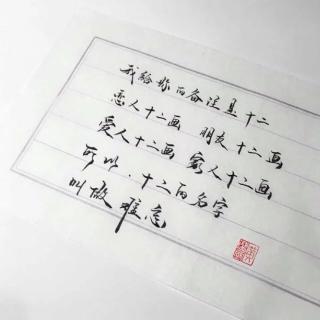 我给你的备注是十二
恋人十二画 朋友十二画
爱人十二画 家人十二画
可以．十二的名字
叫做难忘